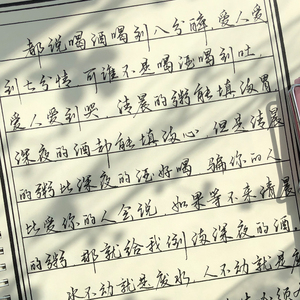 都说喝酒喝到八分醉，爱人爱
到七分情 可谁不是喝酒喝到吐
爱人爱到哭，清晨的粥能填满胃
深夜的酒却能填满心 但是清晨
的粥比深夜的酒好喝 骗你的人
比爱你的人会说，如果等不来清晨
的粥 那就给我倒满深夜的酒，
水不动就是废水，人不动就是废